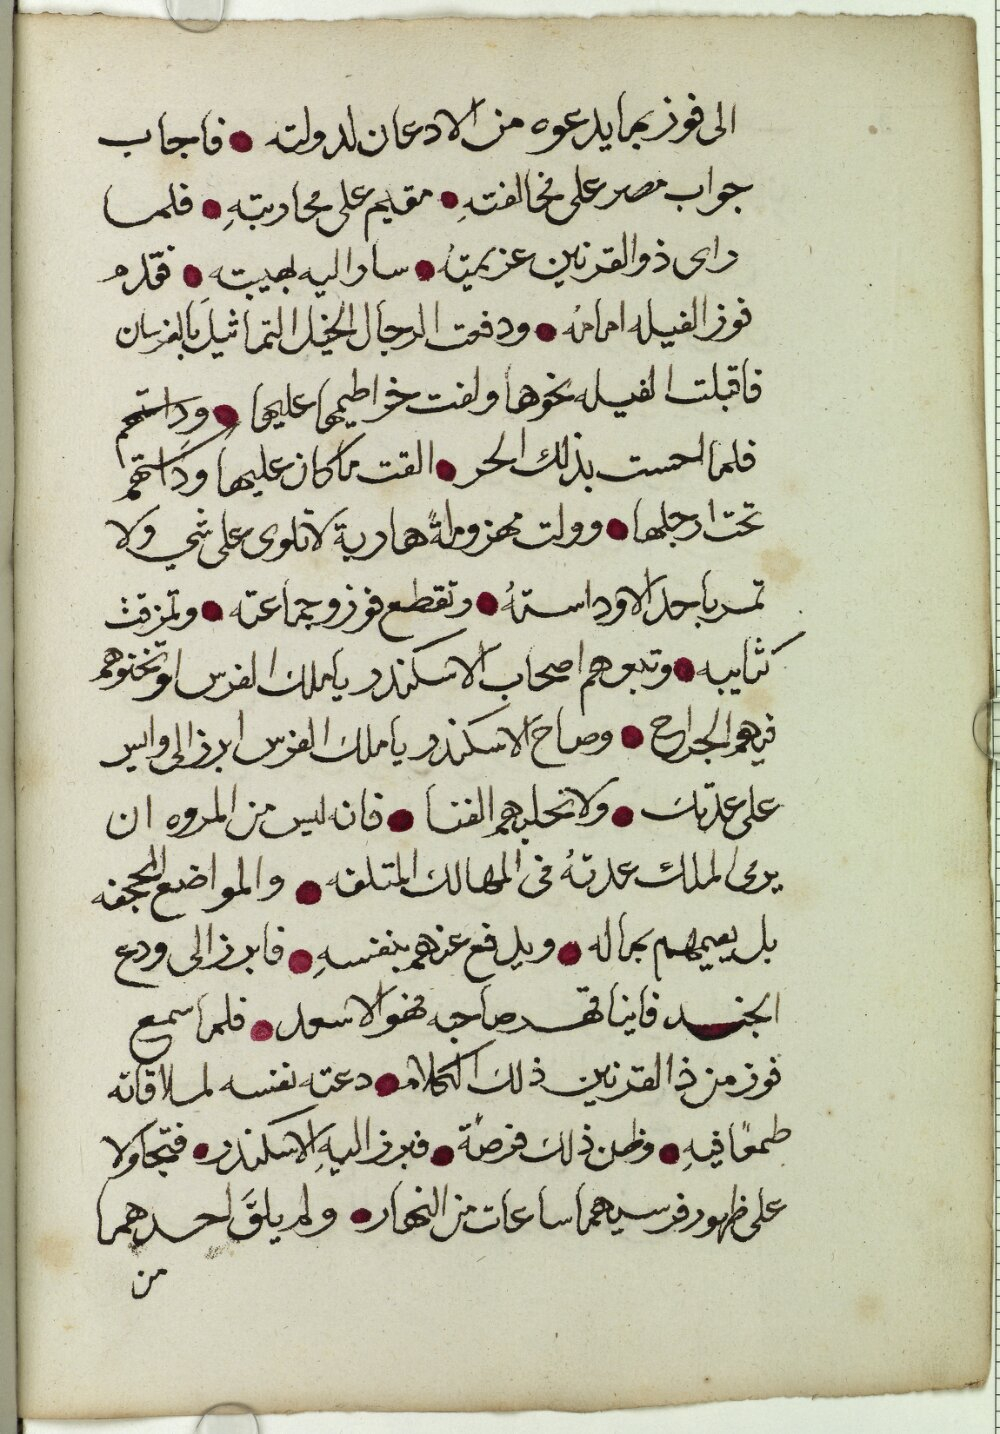 الى فوز بما يدعوه من الادعان لدولته ● فاجاب
جواب مصر على مخالفتهِ ● مقيم على محاربتهِ ● فلما
راى ذو القرنين عزيمتهُ ● سار اليه بهيبته ● فقدم
فوز الفيله امامهُ ● ودفعت الرجال الخيل التماثيلَ بالفرسان
فاقبلت الفيله نحوها ولفت خراطيمها عليها ● وداستهم
فلما احست بذلك الحر ● القت ما كان عليها وداستهم
تحت ارجلها ● وولت مهزومةً هاربة لا تلوى على شي ولا
تمر باحد الا وداستهُ ● وتقطع فوز وجماعته ● وتمزقت
كتايبه ● وتبعوهم اصحاب الاسكندر يا ملك الفرس اوتخنوهم
فيهم الجراح ● وصاح الاسكندر يا ملك الفرس ابرز الى وابس
على عدتك ● ولا تحليهم الفنا ● فانه ليس من المروه ان
يرمى الملك عدتهُ فى المهالك المتلفه ● والمواضع المجحفه
بل يعيمهم بماله ● ويدفع عنهم بنفسهِ ● فابرز الى ودع
الجند فاينا قهر صاحبه فهو الاسعد ● فلما سمع
فوز من ذا القرنين ذلك الكلام ● دعته نفسه لملاقاته
طمعًا فيهِ ● وظن ذلك فرصة ● فبرز اليهِ الاسكندر ● فتجاولا
على ظهور فرسيهما ساعات من النهار ● ولم يلقَ احدهما
من